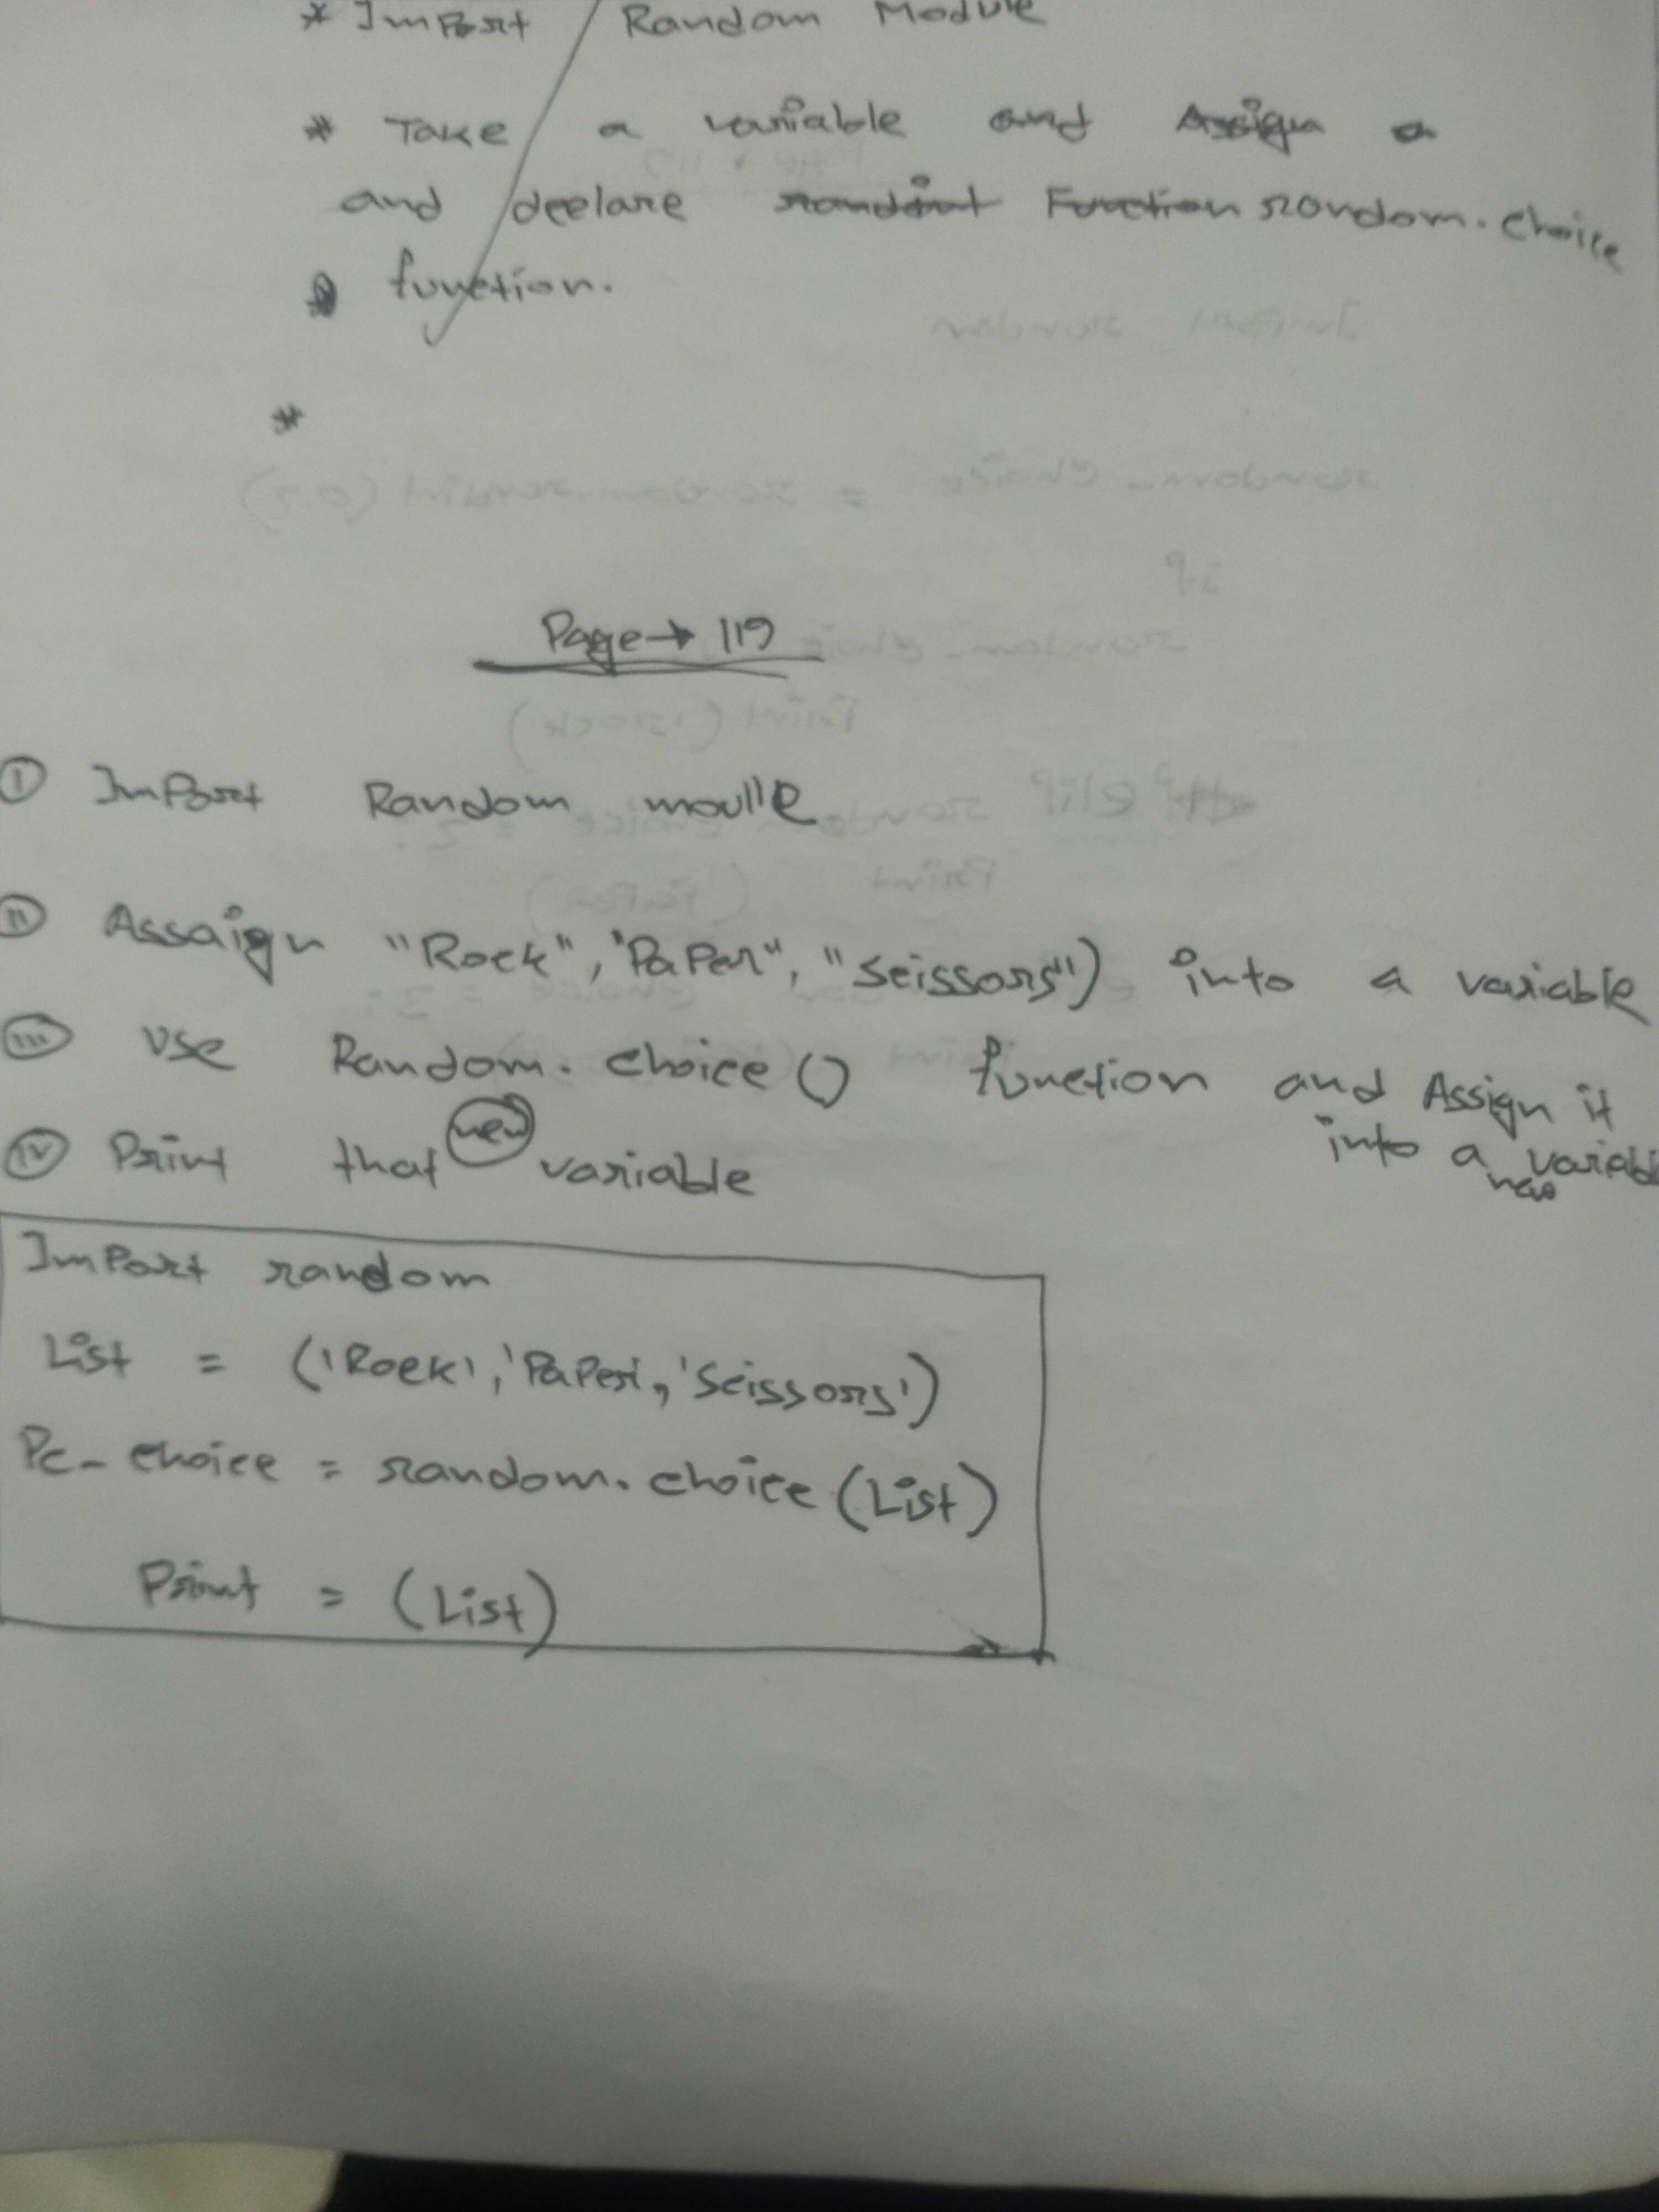 * Import Random Module
* Take a variable and Assign a
and declare randint Function random.choice
function.
*
Page → 119
① Import Random
⑪ Assaign "Rock", 'Paper", "Scissors") into a variable
⑪⑪ Use Random.choice() function and Assign it
into a new variable
Ⓘⓥ Print that new variable
Import random
List = ('Rock', 'Paper', 'Scissors')
Pc_choice = random.choice(List)
Print = (List)